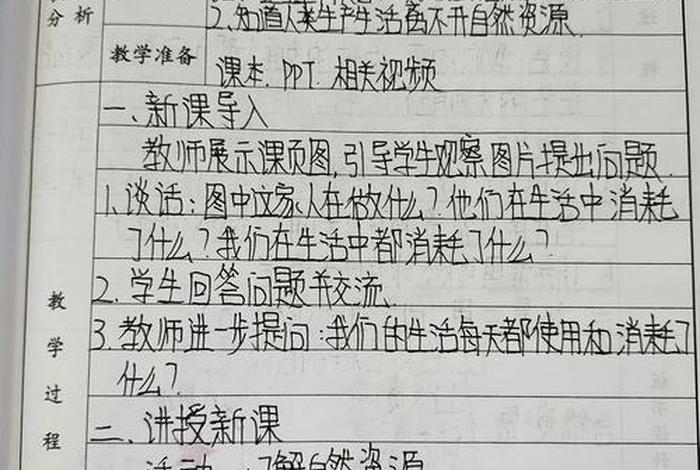 分析
2、知道人类生产生活离不开自然资源.
教学准备
课本. PPT. 相关视频
一、新课导入
教师展示课页图,引导学生观察图片提出问题.
1.谈话:图中这家人在做什么?他们在生活中消耗
了什么?我们在生活中都消耗了什么?
2. 学生回答问题并交流.
3. 教师进一步提问:我们的生活每天都使用和消耗了
什么?
教学过程
二、讲授新课
活动一、了解自然资源